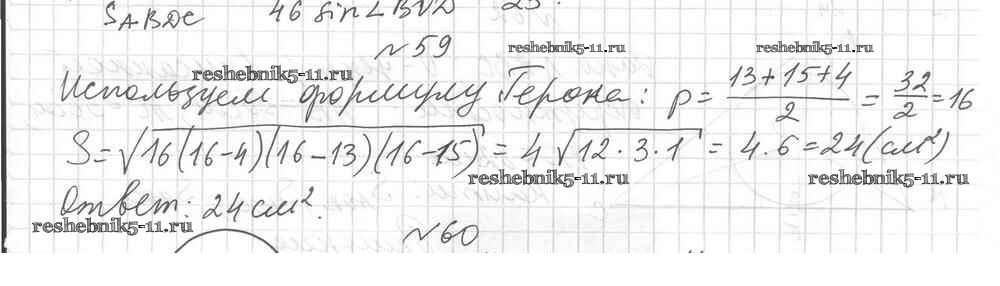 S_ABDC 46 sin∠
№59
reshebnik5-11.ru reshebnik5-11.ru
reshebnik5-11.ru
Используем формулу Герона: p = (13+15+4)/2 = 32/2 = 16
S = √(16(16-4)(16-13)(16-15)) = 4√(12·3·1) = 4·6 = 24 (см²)
reshebnik5-11.ru reshebnik5-11.ru
Ответ: 24 см².
reshebnik5-11.ru
№60